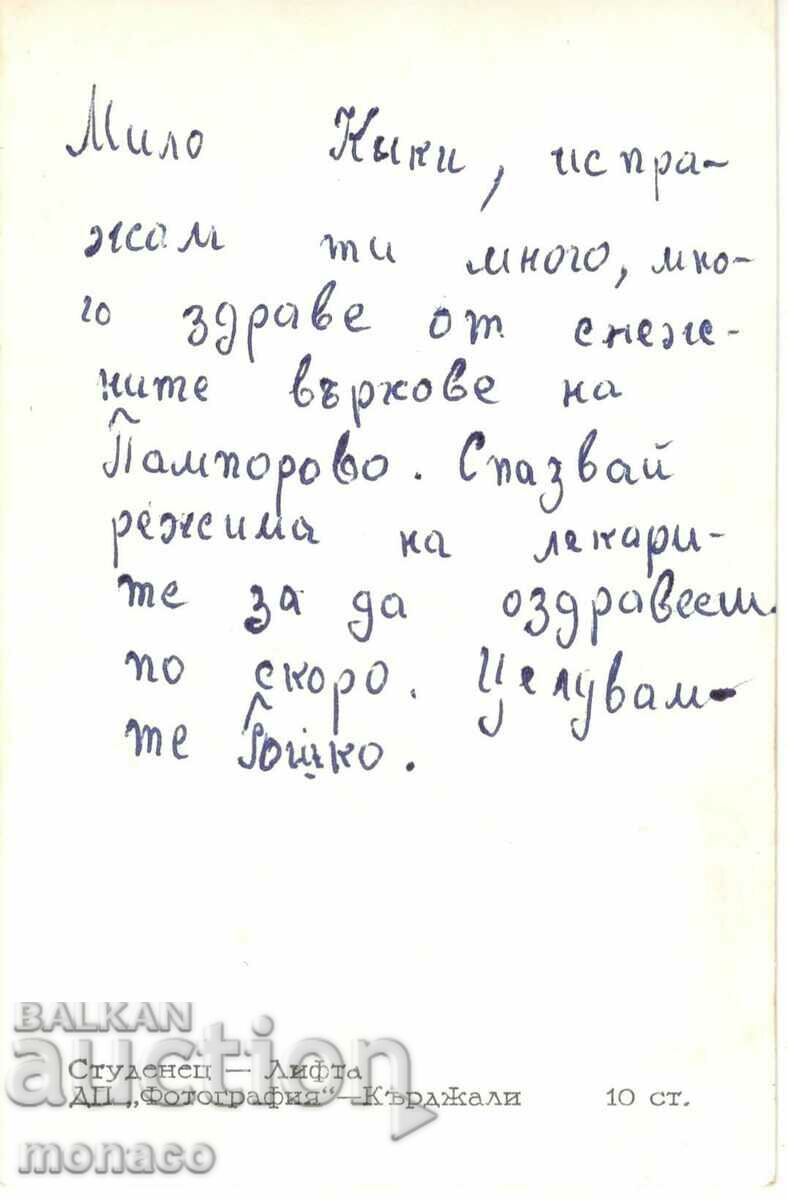 Мило Кики, испра-
жам ти много, мно-
го здраве от снеж-
ните върхове на
Пампорово. Спазвай
режима на лекари-
те за да оздравееш
по скоро. Целувам-
те Гошко.
BALKAN
auction
Студенец — Лифта
ДП „Фотография“—Кърджали 10 ст.
monaco